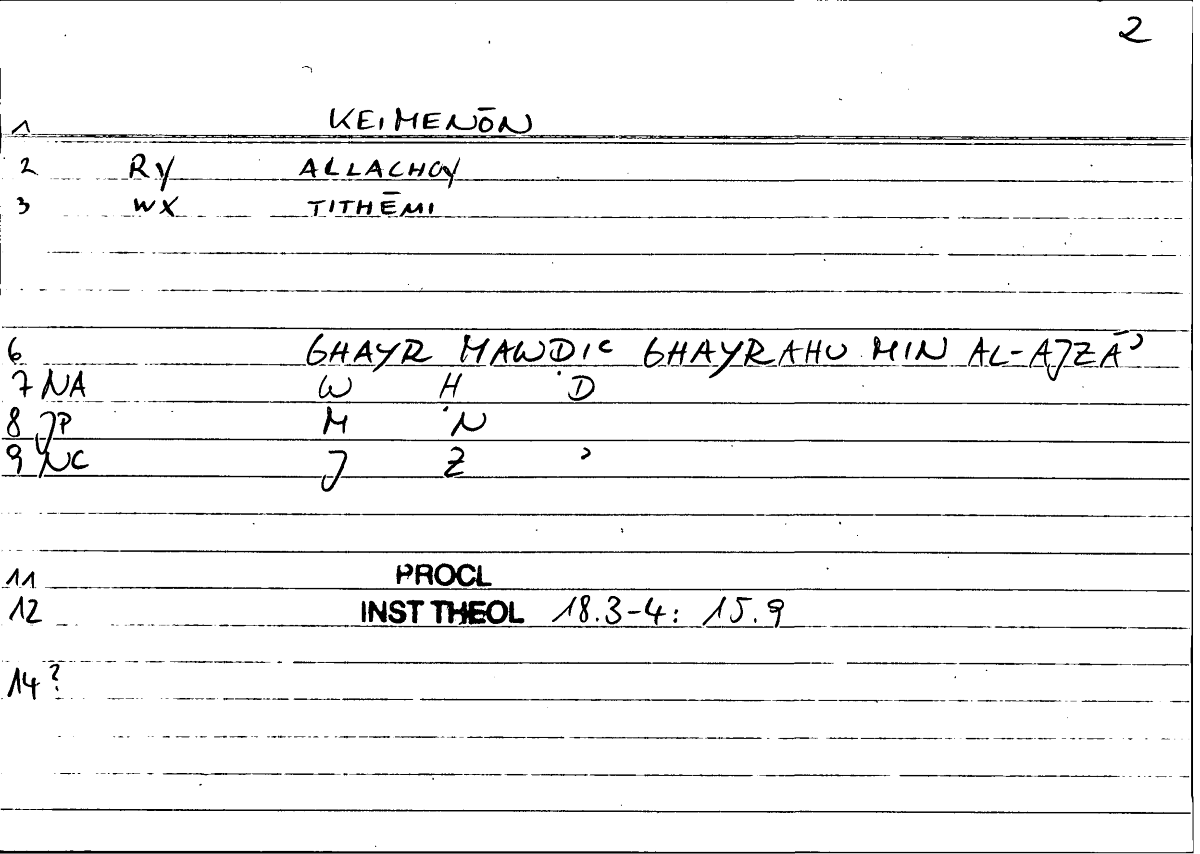 2
1 KEIMENŌN
2 RY ALLACHOY
3 WX TITHĒMI
6 GHAYR MAWDIʿ GHAYRAHU MIN AL-AJZĀʾ
7 NA W H D
8 JP M N
9 NC J Z ʾ
11 PROCL
12 INST THEOL 18.3-4: 15.9
14?